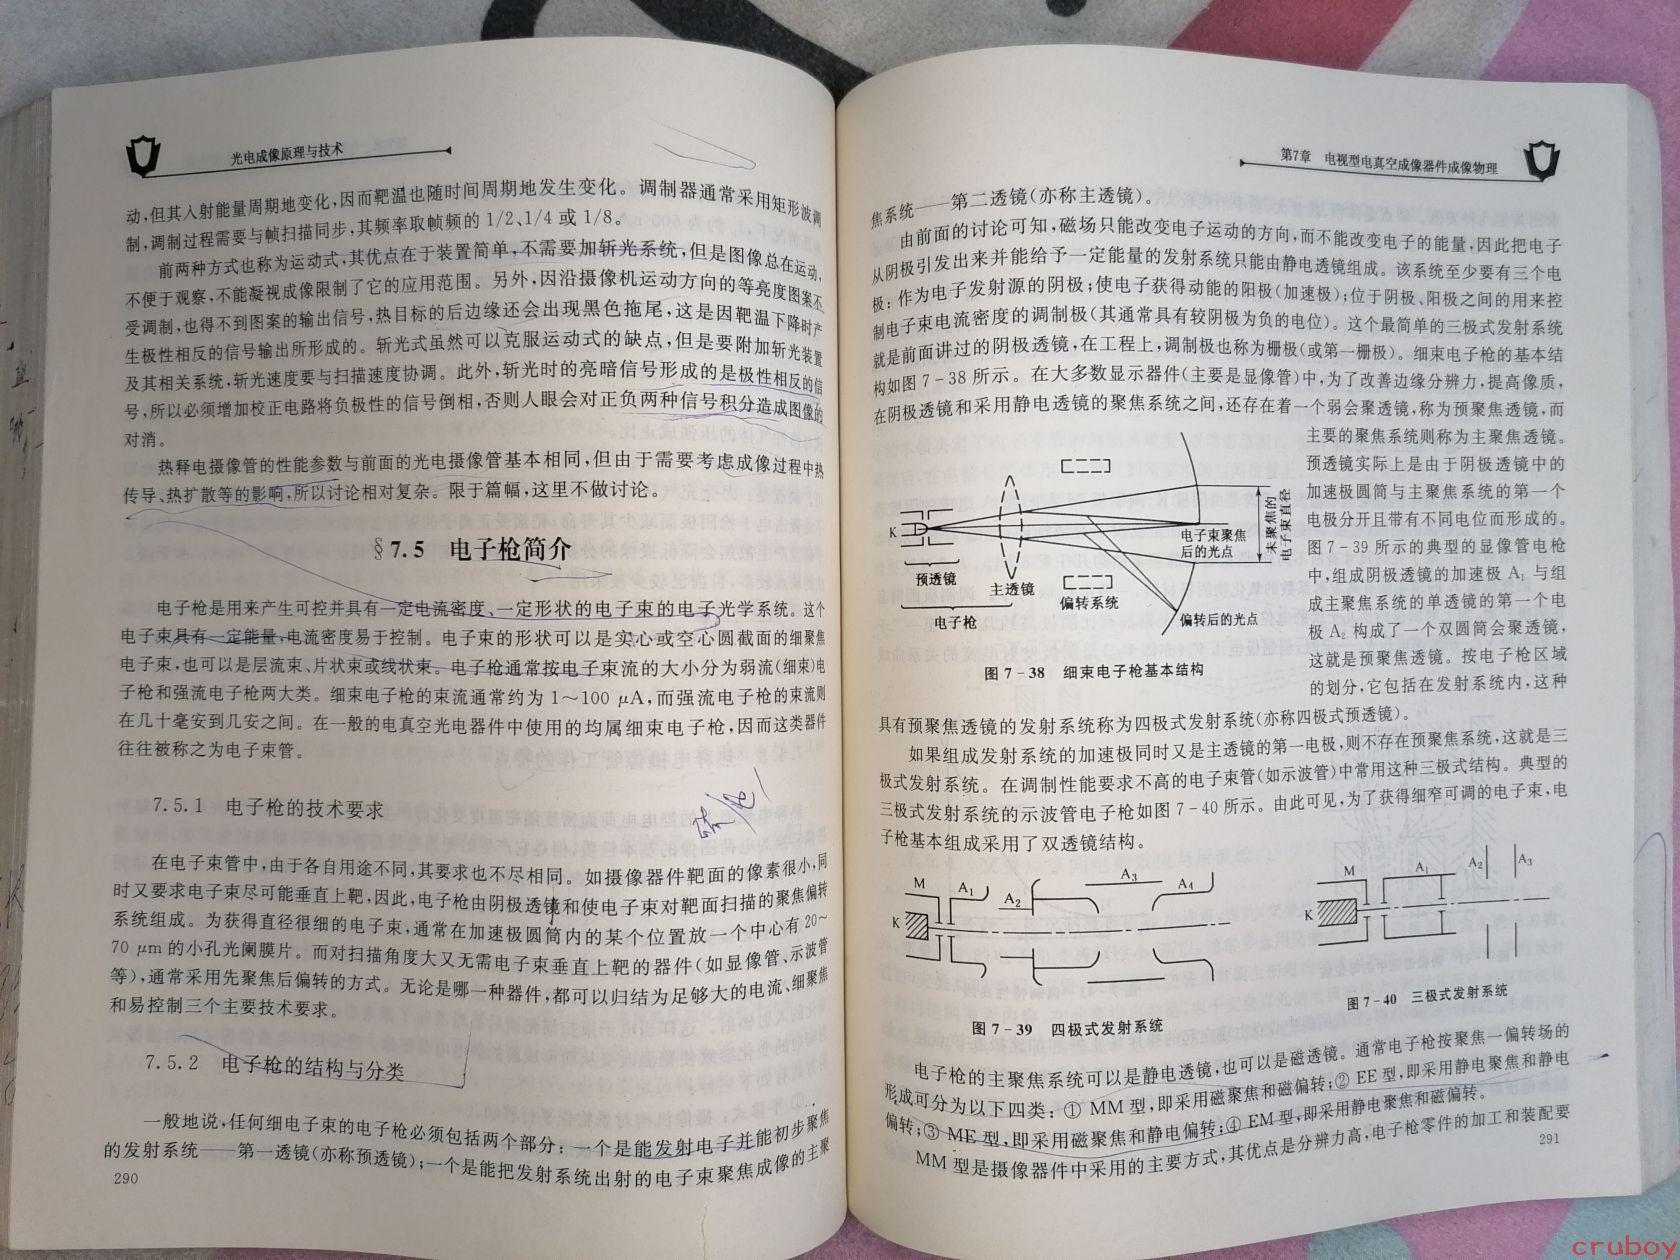 光电成像原理与技术
动,但其入射能量周期地变化,因而靶温也随时间周期地发生变化。调制器通常采用矩形波调
制,调制过程需要与帧扫描同步,其频率取帧频的 1/2、1/4 或 1/8。
前两种方式也称为运动式,其优点在于装置简单,不需要加斩光系统,但是图像总在运动,
不便于观察,不能凝视成像限制了它的应用范围。另外,因沿摄像机运动方向的等亮度图案不
受调制,也得不到图案的输出信号,热目标的后边缘还会出现黑色拖尾,这是因靶温下降时产
生极性相反的信号输出所形成的。斩光式虽然可以克服运动式的缺点,但是要附加斩光装置
及其相关系统,斩光速度要与扫描速度协调。此外,斩光时的亮暗信号形成的是极性相反的信
号,所以必须增加校正电路将负极性的信号倒相,否则人眼会对正负两种信号积分造成图像的
对消。
热释电摄像管的性能参数与前面的光电摄像管基本相同,但由于需要考虑成像过程中热
传导、热扩散等的影响,所以讨论相对复杂。限于篇幅,这里不做讨论。
§7.5 电子枪简介
电子枪是用来产生可控并具有一定电流密度、一定形状的电子束的电子光学系统。这个
电子束具有一定能量,电流密度易于控制。电子束的形状可以是实心或空心圆截面的细聚焦
电子束,也可以是层流束、片状束或线状束。电子枪通常按电子束流的大小分为弱流(细束)电
子枪和强流电子枪两大类。细束电子枪的束流通常约为 1～100 μA,而强流电子枪的束流则
在几十毫安到几安之间。在一般的电真空光电器件中使用的均属细束电子枪,因而这类器件
往往被称之为电子束管。
7.5.1 电子枪的技术要求
在电子束管中,由于各自用途不同,其要求也不尽相同。如摄像器件靶面的像素很小,同
时又要求电子束尽可能垂直上靶,因此,电子枪由阴极透镜和使电子束对靶面扫描的聚焦偏转
系统组成。为获得直径很细的电子束,通常在加速极圆筒内的某个位置放一个中心有 20～
70 μm 的小孔光阑膜片。而对扫描角度大又无需电子束垂直上靶的器件(如显像管、示波管
等),通常采用先聚焦后偏转的方式。无论是哪一种器件,都可以归结为足够大的电流、细聚焦
和易控制三个主要技术要求。
7.5.2 电子枪的结构与分类
一般地说,任何细电子束的电子枪必须包括两个部分:一个是能发射电子并能初步聚焦
的发射系统——第一透镜(亦称预透镜);一个是能把发射系统出射的电子束聚焦成像的主聚
290
第7章 电视型电真空成像器件成像物理
焦系统——第二透镜(亦称主透镜)。
由前面的讨论可知,磁场只能改变电子运动的方向,而不能改变电子的能量,因此把电子
从阴极引发出来并能给予一定能量的发射系统只能由静电透镜组成。该系统至少要有三个电
极:作为电子发射源的阴极;使电子获得动能的阳极(加速极);位于阴极、阳极之间的用来控
制电子束电流密度的调制极(其通常具有较阴极为负的电位)。这个最简单的三极式发射系统
就是前面讲过的阴极透镜,在工程上,调制极也称为栅极(或第一栅极)。细束电子枪的基本结
构如图 7-38 所示。在大多数显示器件(主要是显像管)中,为了改善边缘分辨力,提高像质,
在阴极透镜和采用静电透镜的聚焦系统之间,还存在着一个弱会聚透镜,称为预聚焦透镜,而
主要的聚焦系统则称为主聚焦透镜。
预透镜实际上是由于阴极透镜中的
加速极圆筒与主聚焦系统的第一个
电极分开且带有不同电位而形成的。
图 7-39 所示的典型的显像管电枪
中,组成阴极透镜的加速极 A₁ 与组
成主聚焦系统的单透镜的第一个电
极 A₂ 构成了一个双圆筒会聚透镜,
这就是预聚焦透镜。按电子枪区域
的划分,它包括在发射系统内,这种
K
预透镜
主透镜
电子枪
偏转系统
电子束聚焦
后的光点
偏转后的光点
未聚焦的
电子束直径
图 7-38 细束电子枪基本结构
具有预聚焦透镜的发射系统称为四极式发射系统(亦称四极式预透镜)。
如果组成发射系统的加速极同时又是主透镜的第一电极,则不存在预聚焦系统,这就是三
极式发射系统。在调制性能要求不高的电子束管(如示波管)中常用这种三极式结构。典型的
三极式发射系统的示波管电子枪如图 7-40 所示。由此可见,为了获得细窄可调的电子束,电
子枪基本组成采用了双透镜结构。
M A₁ A₂ A₃ A₄
K
图 7-39 四极式发射系统
M A₁ A₂ A₃
K
图 7-40 三极式发射系统
电子枪的主聚焦系统可以是静电透镜,也可以是磁透镜。通常电子枪按聚焦—偏转场的
形成可分为以下四类:① MM 型,即采用磁聚焦和磁偏转;② EE 型,即采用静电聚焦和静电
偏转;③ ME 型,即采用磁聚焦和静电偏转;④ EM 型,即采用静电聚焦和磁偏转。
MM 型是摄像器件中采用的主要方式,其优点是分辨力高,电子枪零件的加工和装配要
291
cruboy